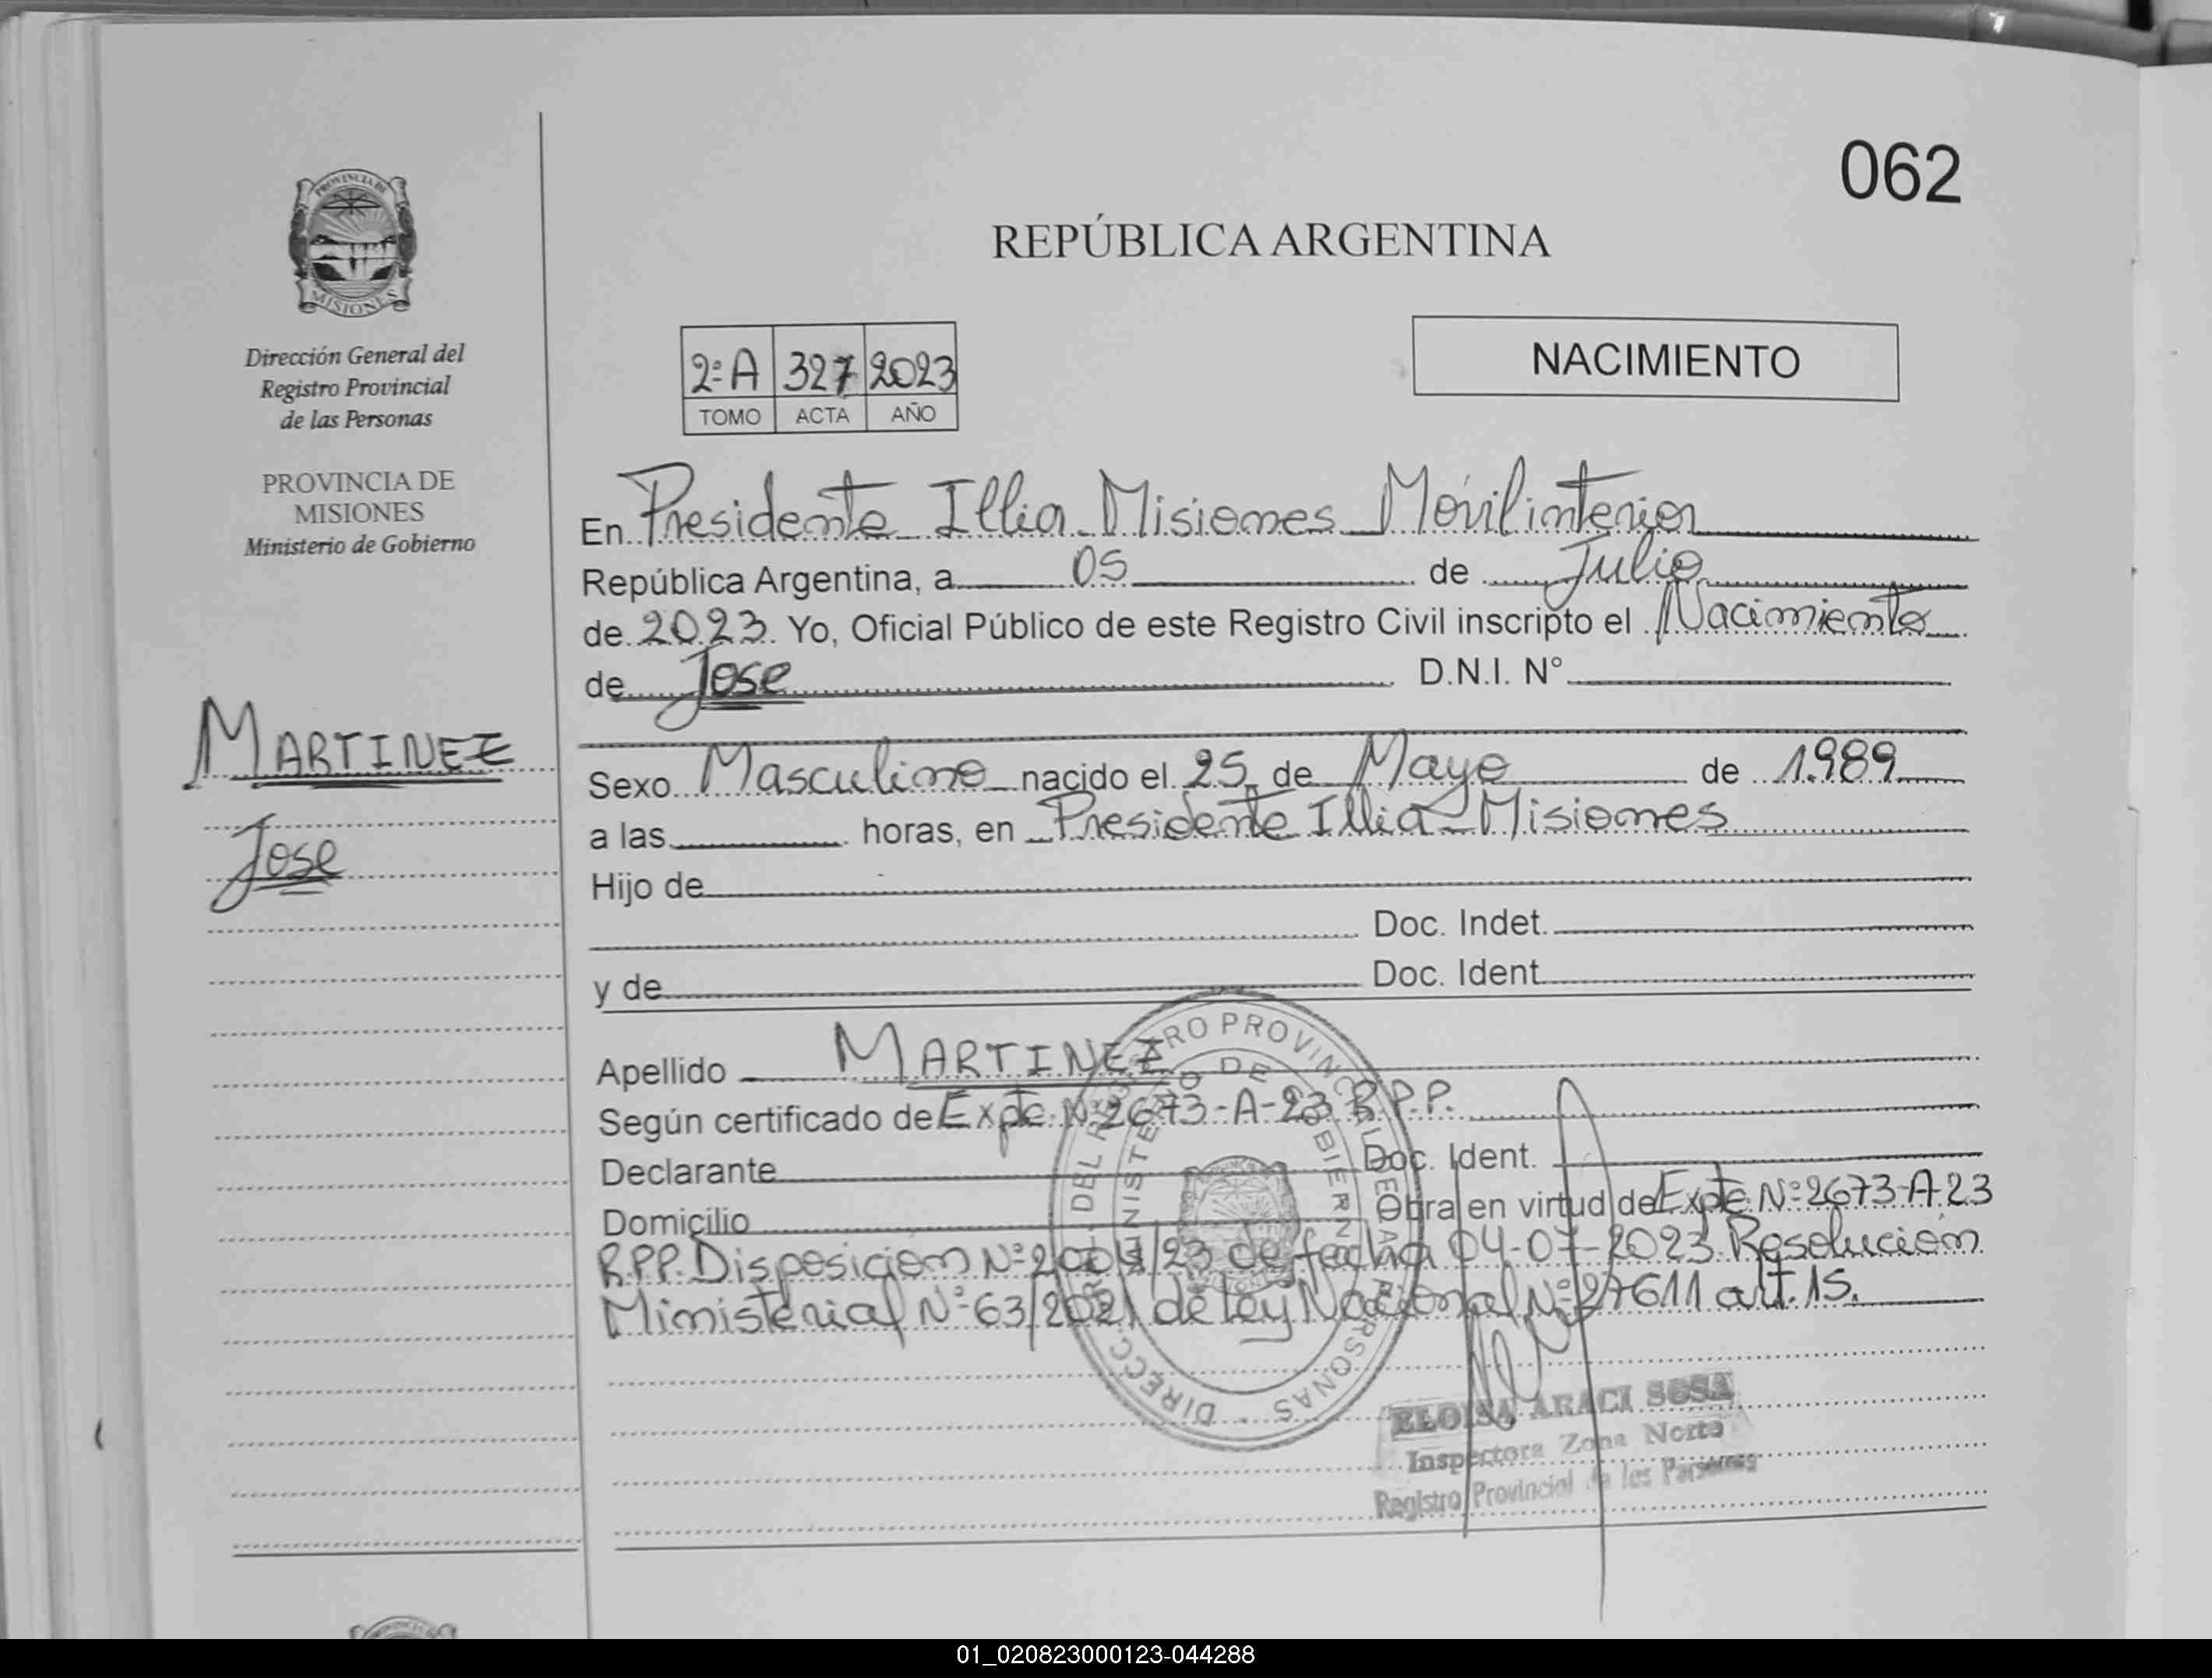 062
PROVINCIA DE
MISIONES
Dirección General del
Registro Provincial
de las Personas
PROVINCIA DE
MISIONES
Ministerio de Gobierno
MARTINEZ
Jose
REPÚBLICA ARGENTINA
2º A 327 2023
TOMO ACTA AÑO
NACIMIENTO
En Presidente Illia Misiones Móvil interior
República Argentina, a 05 de Julio
de 2023 Yo, Oficial Público de este Registro Civil inscripto el Nacimiento
de Jose D.N.I. N°
Sexo Masculino nacido el 25 de Mayo de 1.989
a las horas, en Presidente Illia - Misiones
Hijo de
Doc. Indet.
y de Doc. Ident.
Apellido MARTINEZ
Según certificado de Expte. Nº 2673-A-23 R.P.P.
Declarante Doc. Ident.
Domicilio Obra en virtud de Expte Nº 2673-A-23
R.P.P. Disposicion Nº 2004/23 de fecha 04-07-2023 Resolución
Ministerial Nº 63/2021 de Ley Nacional Nº 27611 art. 15.
ELOISA ARACI SOSA
Inspectora Zona Norte
Registro Provincial de las Personas
01_020823000123-044288